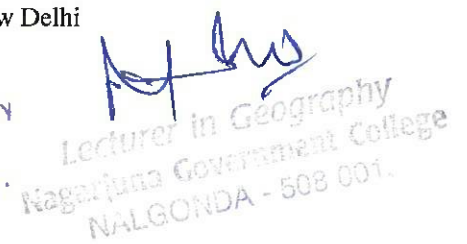 w Delhi
Lecturer in Geography
Nagarjuna Government College
NALGONDA - 508 001.